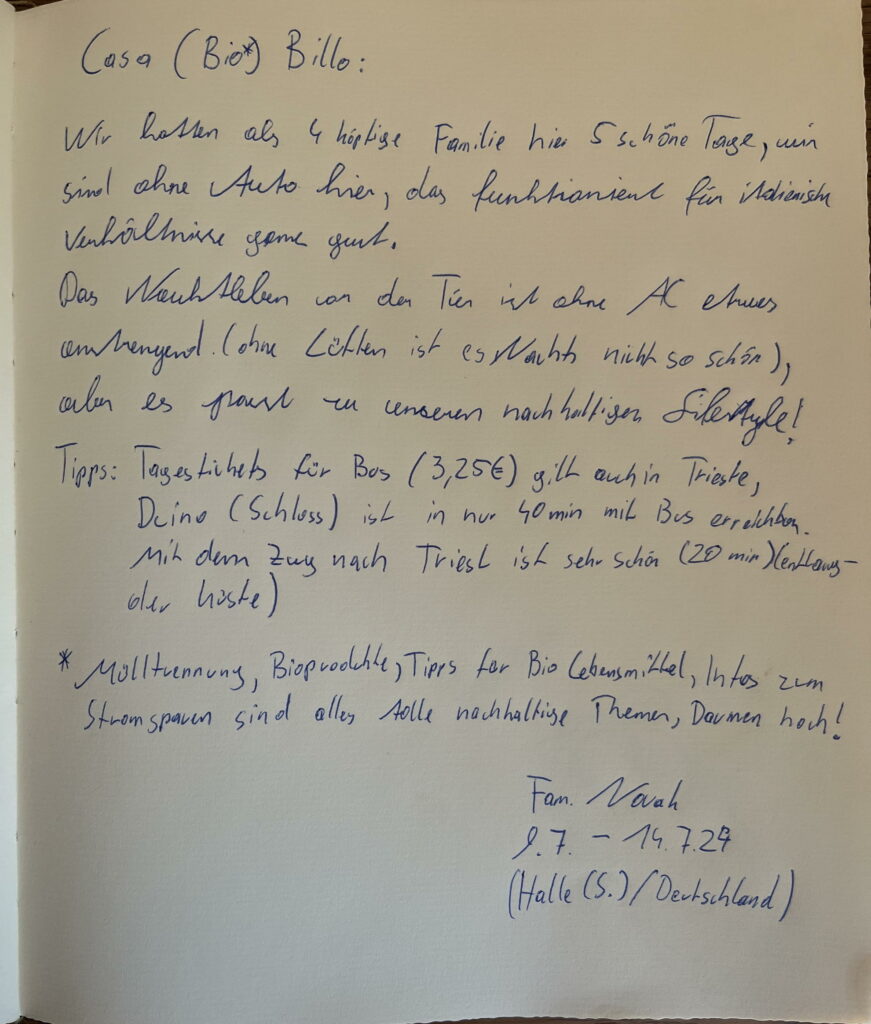 Casa (Bio*) Billo:
Wir hatten als 4 köpfige Familie hier 5 schöne Tage, wir
sind ohne Auto hier, das funktioniert für italienische
Verhältnisse ganz gut.
Das Nachtleben vor der Tür ist ohne AC etwas
anstrengend. (ohne Lüften ist es Nachts nicht so schön),
aber es passt zu unseren nachhaltigen Lifestyle!
Tipps: Tagestickets für Bus (3,25€) gilt auch in Trieste,
Duino (Schloss) ist in nur 40min mit Bus erreichbar.
Mit dem Zug nach Triest ist sehr schön (20 min) (entlang
der Küste)
* Mülltrennung, Bioprodukte, Tipps für Bio Lebensmittel, Infos zum
Stromsparen sind alles tolle nachhaltige Themen, Daumen hoch!
Fam. Novak
9.7. - 14.7.24
(Halle (S.) / Deutschland)